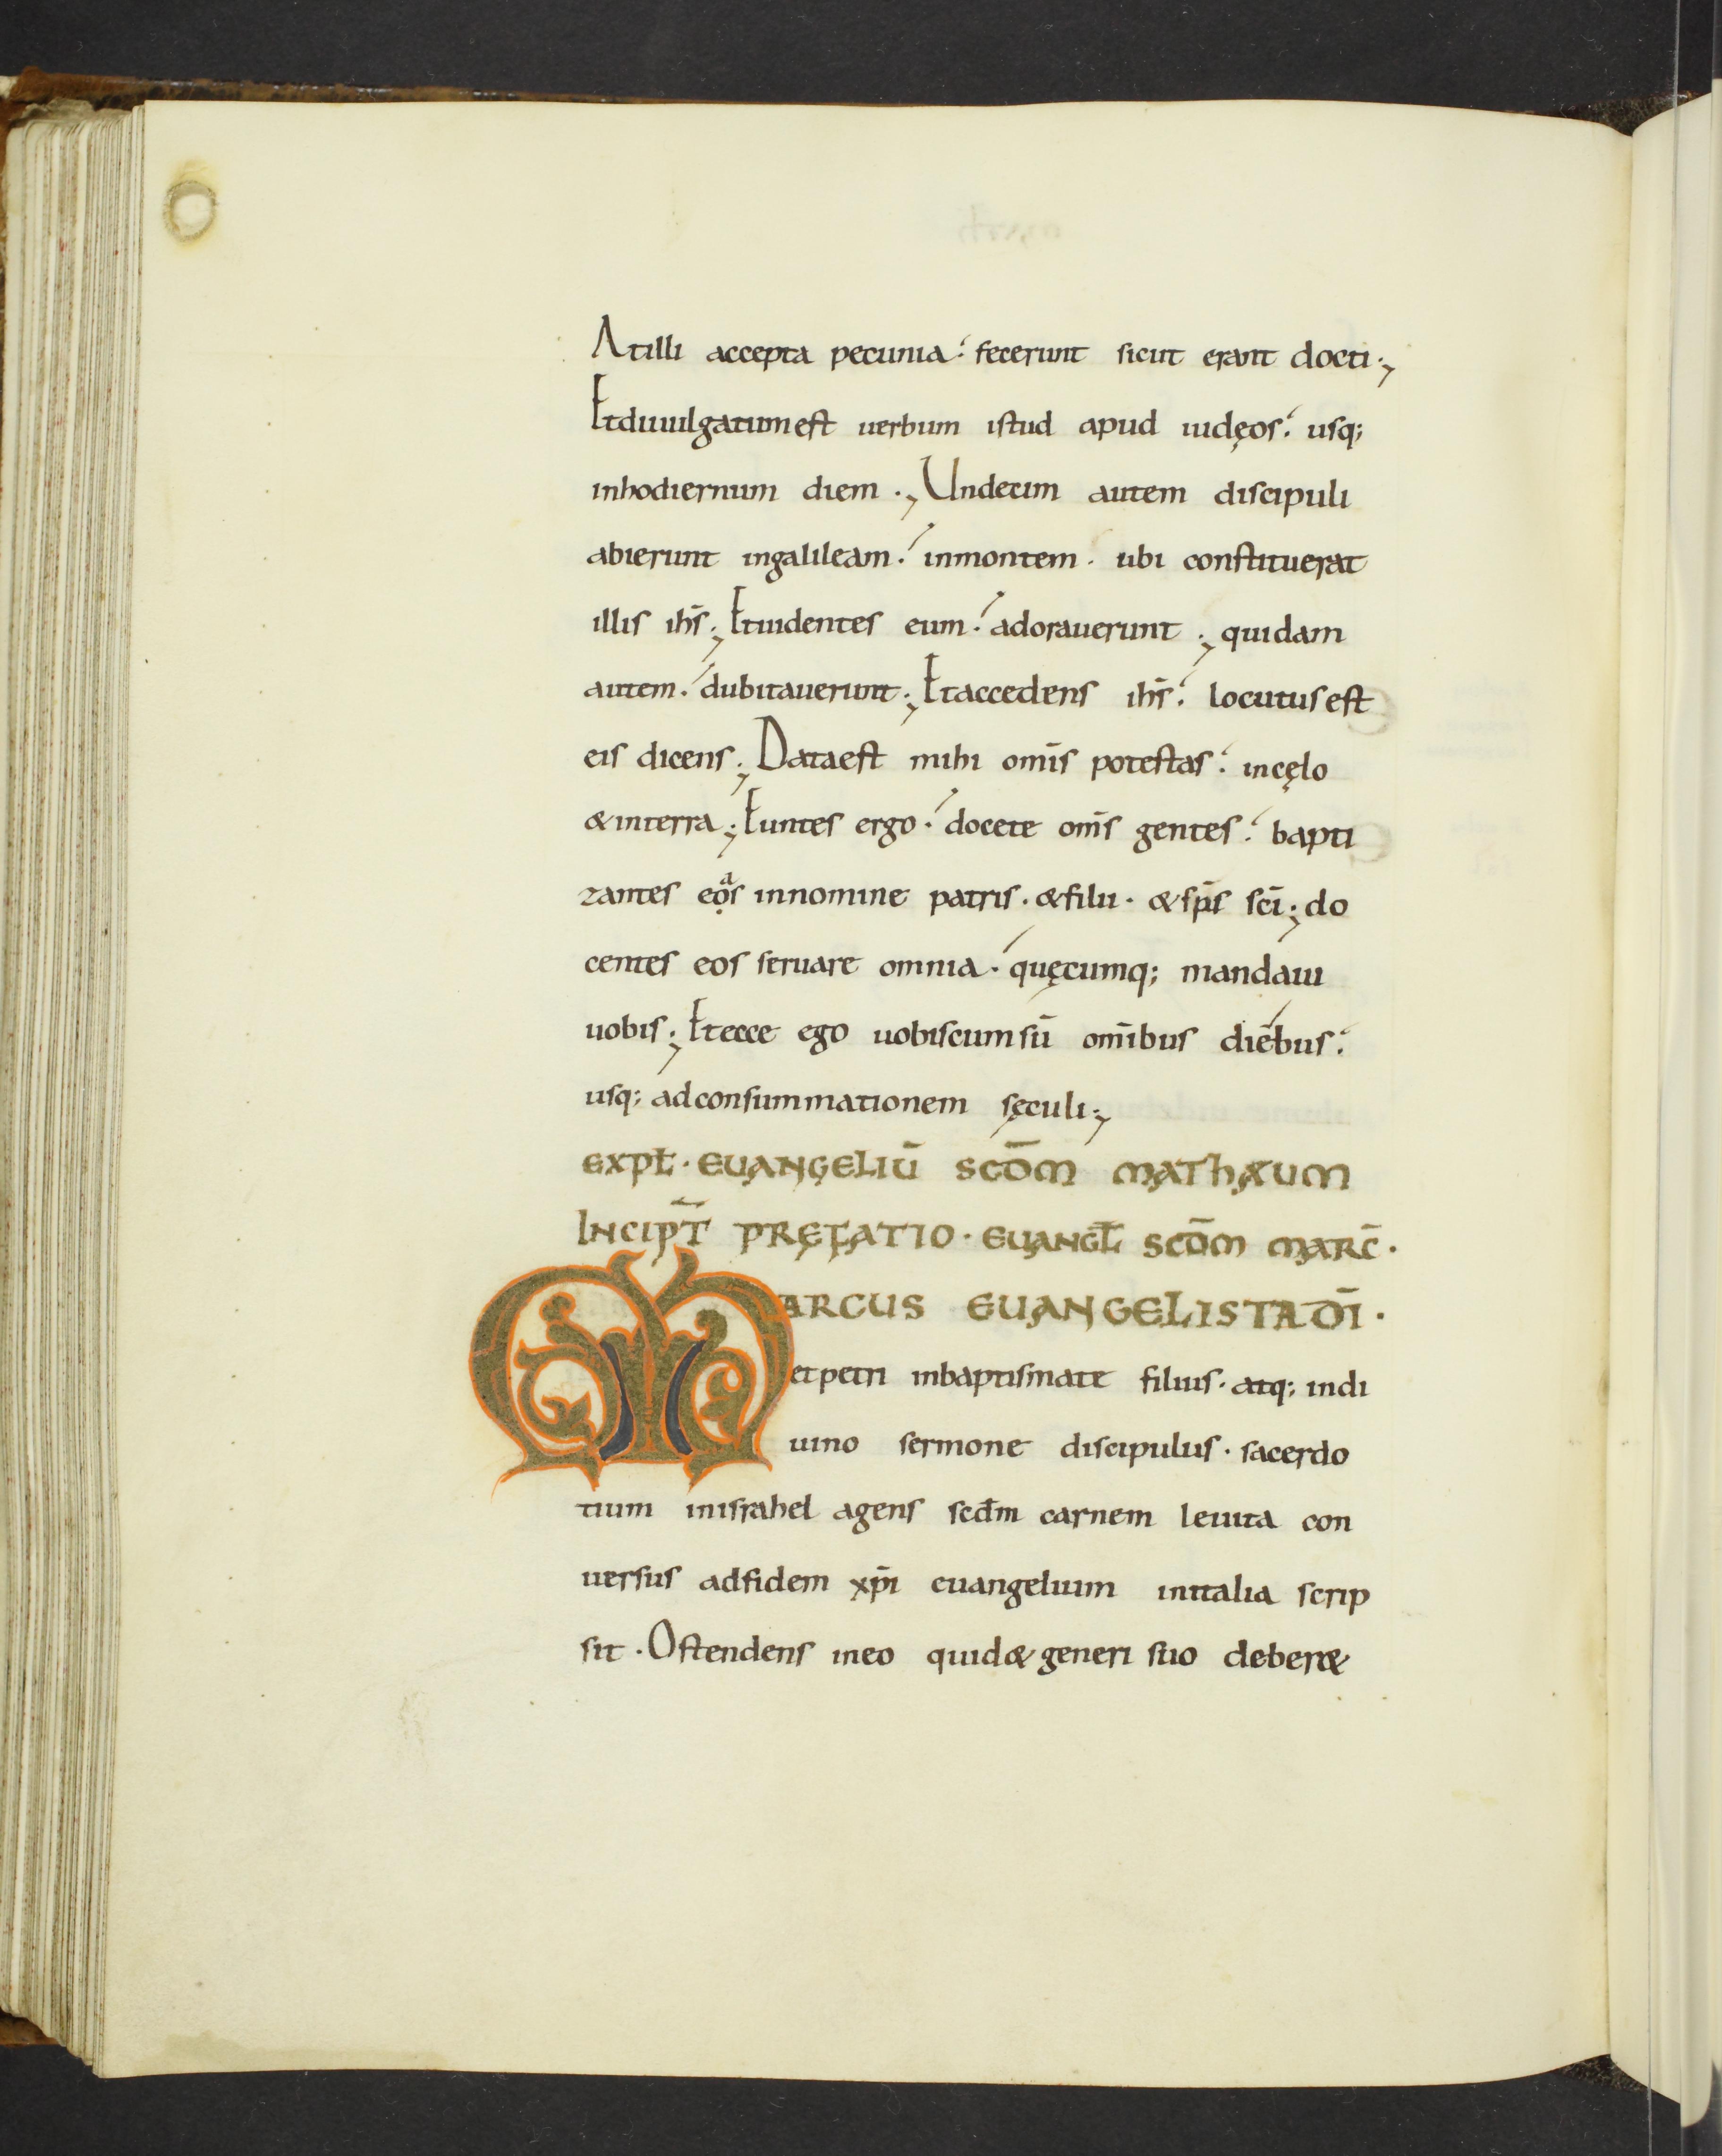 Atilli accepta pecunia. fecerunt sicut erant docti.,
Etdiuulgatumest uerbum istud apud iudęos. usq;
inhodiernum diem., Undecim autem discipuli
abierunt ingalileam. inmontem. ubi constituerat
illis ihs̄., Etuidentes eum. adorauerunt., quidam
autem. dubitauerunt., Etaccedens ihs̄. locutusest
eis dicens., Dataest mihi om̄is potestas. incęlo
&interra., Euntes ergo. docete om̄s gentes. bapti
zantes eọᵃs innomine patris. &filii. &sp̄s sc̄i., do
centes eos seruare omnia. quęcumq; mandaui
uobis., Etecce ego uobiscumsū om̄ibus diebus.
usq; adconsummationem sęculi.,
EXPƚ. EUANGELIŪ SCD̄M MATHÆUM
INCIPT̄ PREFATIO. EUANGƚ SCD̄M MARC̄.
MARCUS EUANGELISTA DI̅.
etpetri inbaptismate filius. atq; indi
uino sermone discipulus. sacerdo
tium inisrahel agens scd̄m carnem leuita con
uersus adfidem xp̄i euangelium initalia scrip
sit. Ostendens ineo quid&generi suo deber&